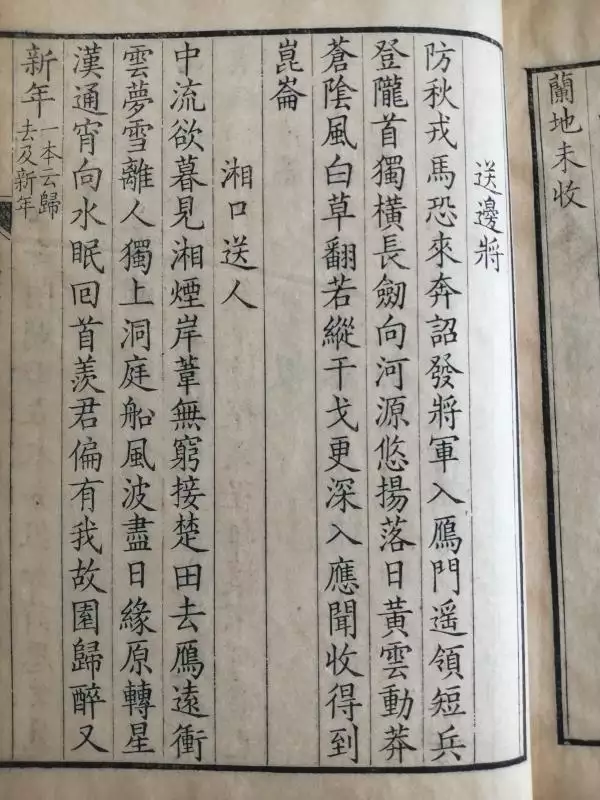 蘭地未收
送邊將
防秋戎馬恐來奔詔發將軍入鴈門遥領短兵
登隴首獨橫長劒向河源悠揚落日黃雲動莽
蒼陰風白草翻若縱干戈更深入應聞收得到
崑崙
湘口送人
中流欲暮見湘煙岸葦無窮接楚田去鴈遠衝
雲夢雪離人獨上洞庭船風波盡日緣原轉星
漢通宵向水眠回首羨君偏有我故園歸醉又
新年一本云歸
去及新年